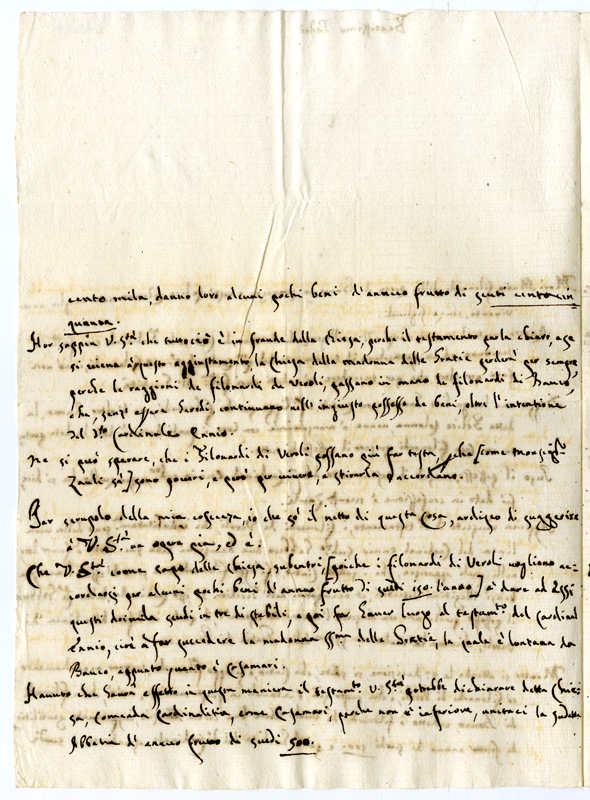 cento mila, danno loro alcuni pochi beni d'annuo frutto di scudi cento cin=
quanta.
Hor sappia V. Stà che tuttociò è in fraude della Chiesa, perche il testamento parla chiaro, e se
si viene à questo aggiustamento, la Chiesa della madonna delle Gratie perderà per sempre,
perche le raggioni de filonardi de Veroli, passano in mano de filonardi di Bauco,
che, senz' essere heredi, continuano nell' ingiusto possesso de beni, oltre l'intentione
del do Cardinale Ennio.
Ne si può sperare, che i filonardi di Veroli possano più far testa, perche [come Monsigr
Zauli sà] sono poveri, e però per vivere, si accordano.
Per scrupolo della mia coscenza, io che sò il netto di questa cosa, ardisco di suggerire
à V. Stà un opera pia, ed è.
Che V. Stà come capo della chiesa, subentri, [poiche i filonardi di Veroli vogliono ac=
cordarsi per alcuni pochi beni d'annuo frutto di scudi 150. l'anno] à dare ad Essi
questi doimila scudi in tre di stabili, e poi far haver luogo al testamto del Cardinal
Ennio, cioè à far succedere la madonna ssma della Gratie, la quale è lontana da
Bauco, appunto quanto è Casamari.
Havuto che haverà effetto in questa maniera il testamto. V. Stà potrebbe dichiarare detta Chie=
sa, Comenda Cardinalitia, come Casamari, perche non è inferiore, unitaci la sudetta
Abbatia d'annuo frutto di scudi 500.